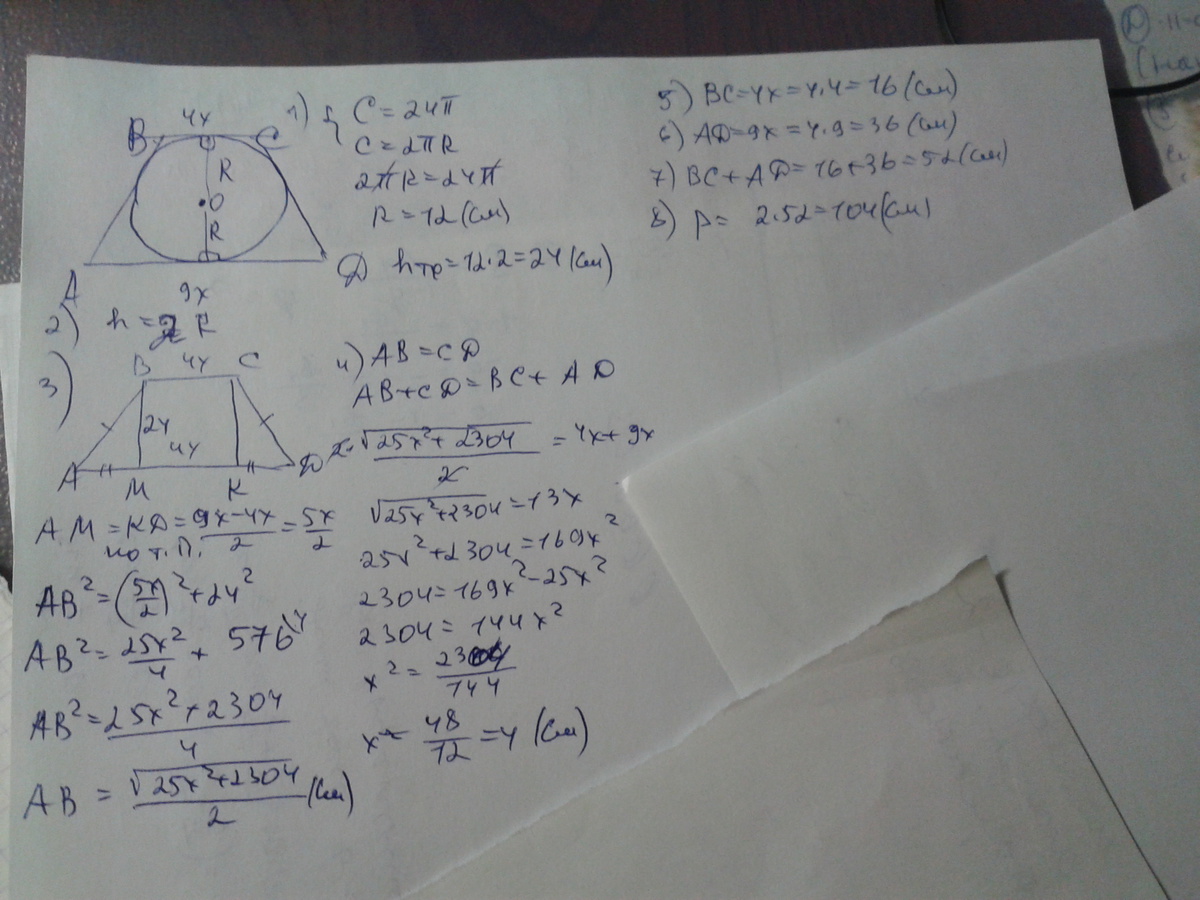 4x
B C
R
O
R
A D
9x
1) { C = 24π
C = 2πR
2πR = 24π
R = 12 (см)
hтр = 12·2 = 24 (см)
2) h = 2R
3)
B 4x C
24
4x
A M K D
AM = KD = (9x-4x)/2 = 5x/2
по т. П.
AB² = (5x/2)² + 24²
AB² = 25x²/4 + 576\4
AB² = (25x² + 2304)/4
AB = √(25x² + 2304)/2 (см)
4) AB = CD
AB + CD = BC + AD
2·√(25x² + 2304)/2 = 4x + 9x
√(25x² + 2304) = 13x
25x² + 2304 = 169x²
2304 = 169x² - 25x²
2304 = 144x²
x² = 2304/144
x = 48/12 = 4 (см)
5) BC = 4x = 4·4 = 16 (см)
6) AD = 9x = 4·9 = 36 (см)
7) BC + AD = 16 + 36 = 52 (см)
8) p = 2·52 = 104 (см)